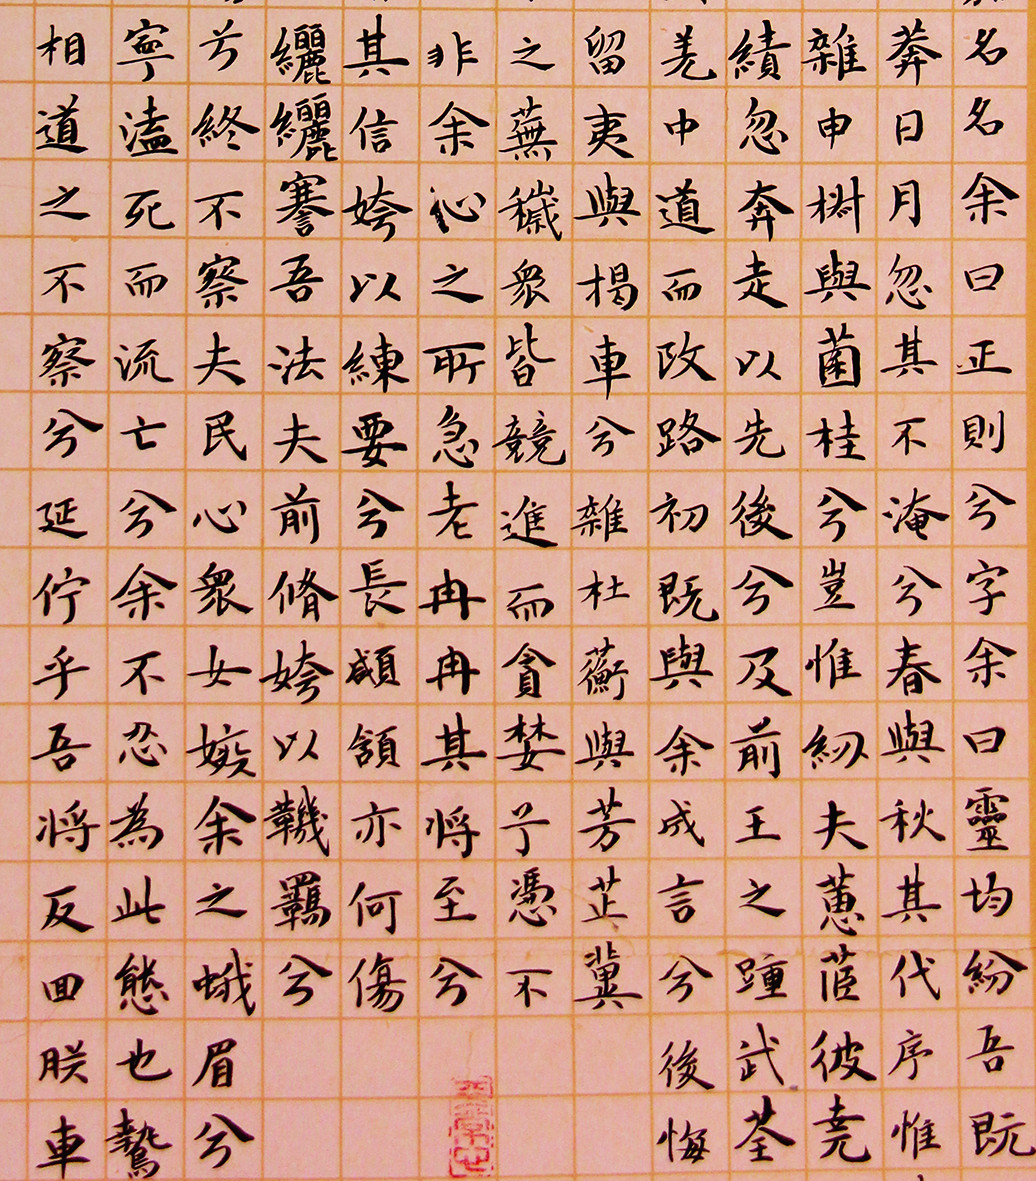 名名余曰正則兮字余曰靈均紛吾既
莽日月忽其不淹兮春與秋其代序惟
雜申椒與菌桂兮豈惟紉夫蕙茝彼堯
績忽奔走以先後兮及前王之踵武荃
羌中道而改路初既與余成言兮後悔
留夷與揭車兮雜杜蘅與芳芷冀
之蕪穢眾皆競進而貪婪兮憑不
非余心之所急老冉冉其將至兮
其信姱以練要兮長顑頷亦何傷
纚纚謇吾法夫前脩姱以鞿羈兮
兮終不察夫民心眾女嫉余之蛾眉兮
寧溘死而流亡兮余不忍為此態也鷙
相道之不察兮延佇乎吾將反回朕車